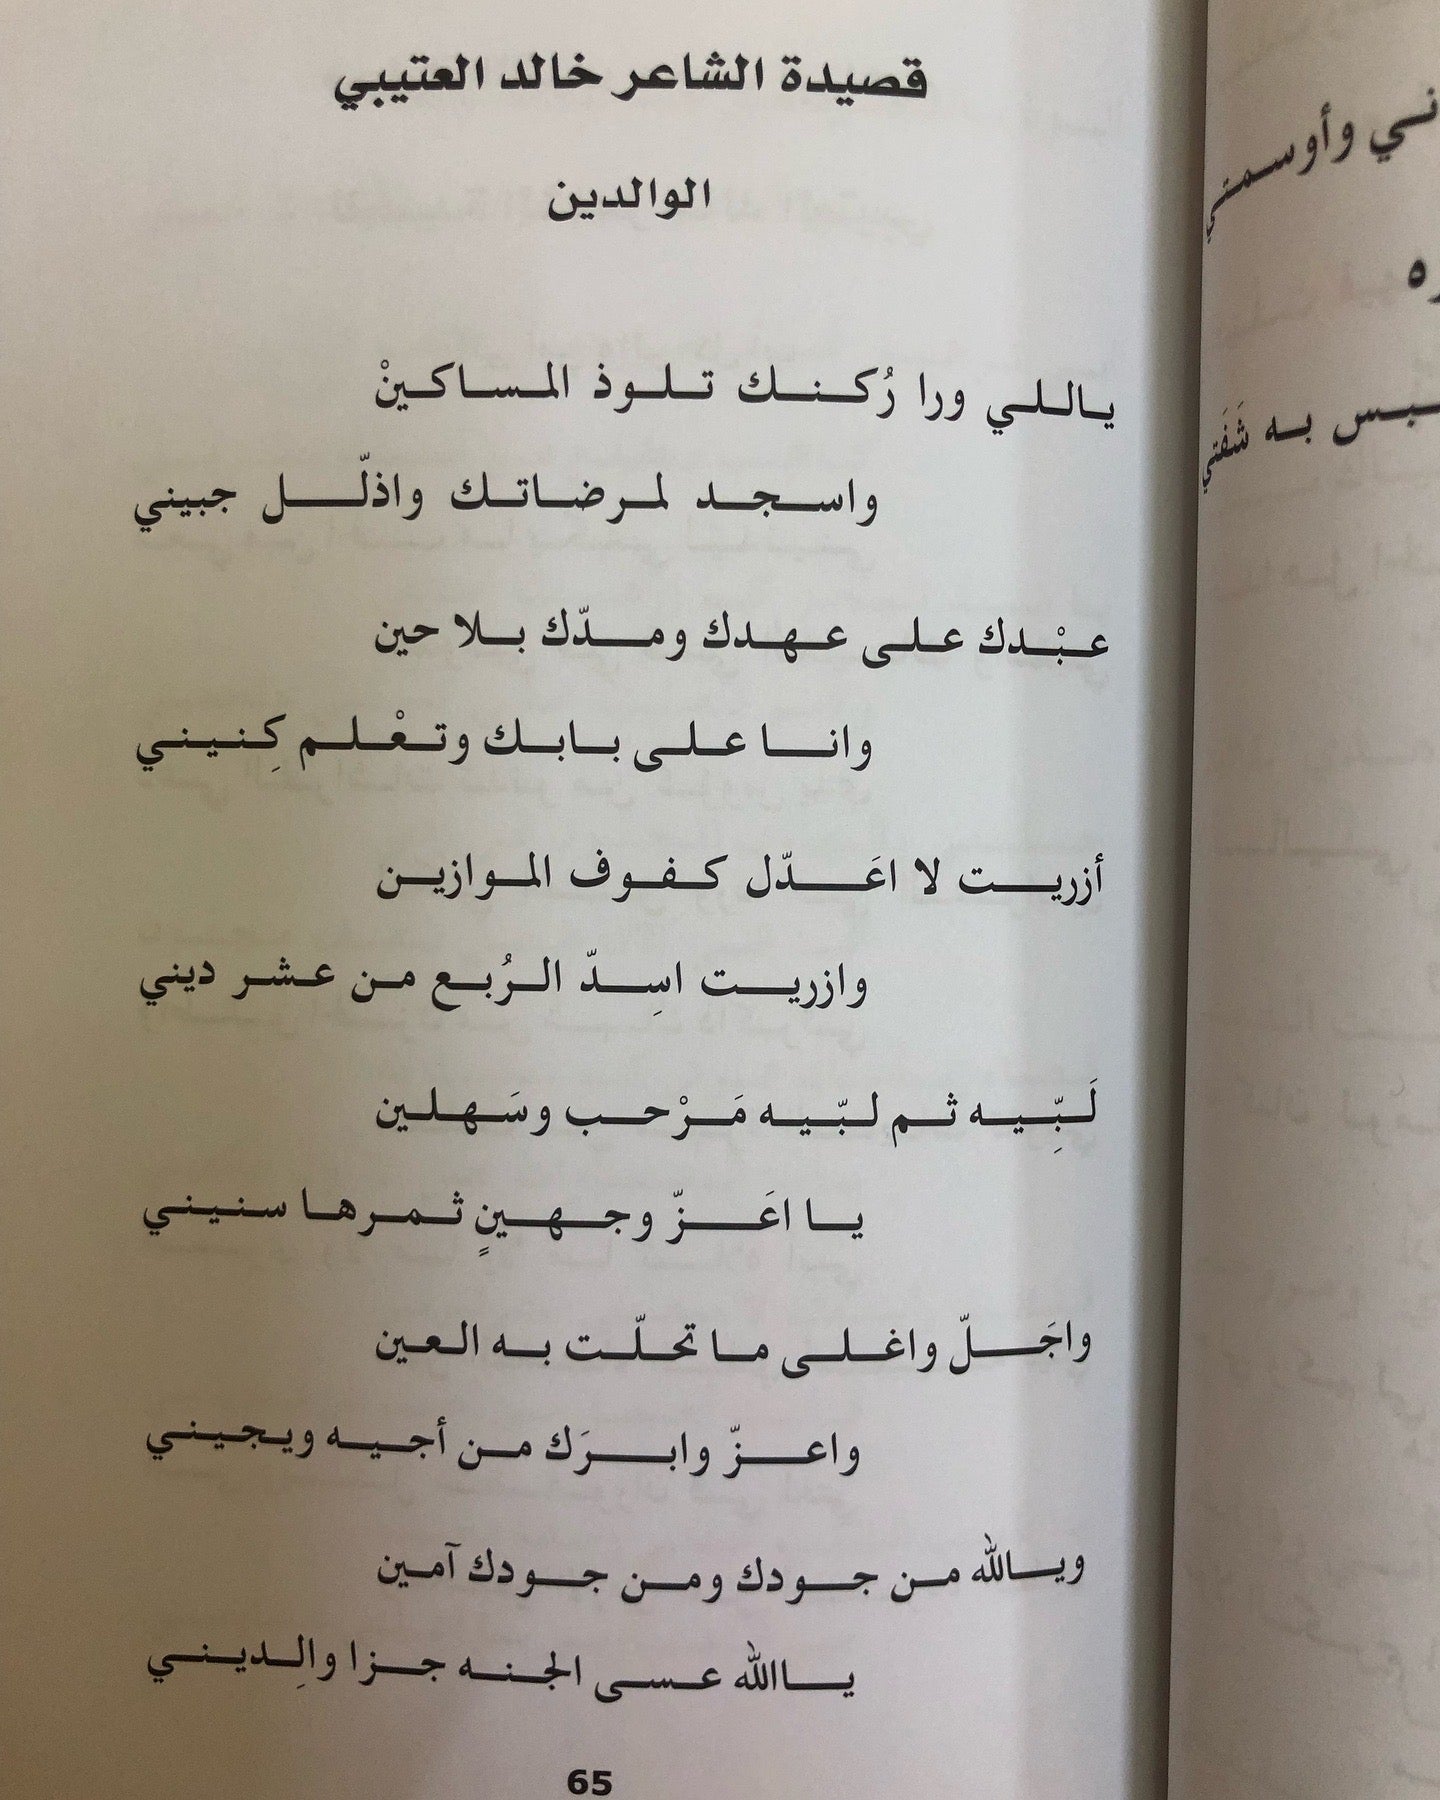 قصيدة الشاعر خالد العتيبي
الوالدين
ياللي ورا رُكنك تلوذ المساكينْ
واسجد لمرضاتك واذلّل جبيني
عبْدك على عهدك ومدّك بلا حين
وانا على بابك وتعْلم كِنيني
أزريت لا اعَدّل كفوف الموازين
وازريت اسِدّ الرُبع من عشر ديني
لَبِّيه ثم لبّيه مَرْحب وسَهلين
يا اعَزّ وجهينٍ ثمرها سنيني
واجَلّ واغلى ما تحلّت به العين
واعزّ وابرَك من أجيه ويجيني
ويالله من جودك ومن جودك آمين
ياالله عسى الجنه جزا والِديني
65
ني وأوسمتي
ره
بس به شَفَتي